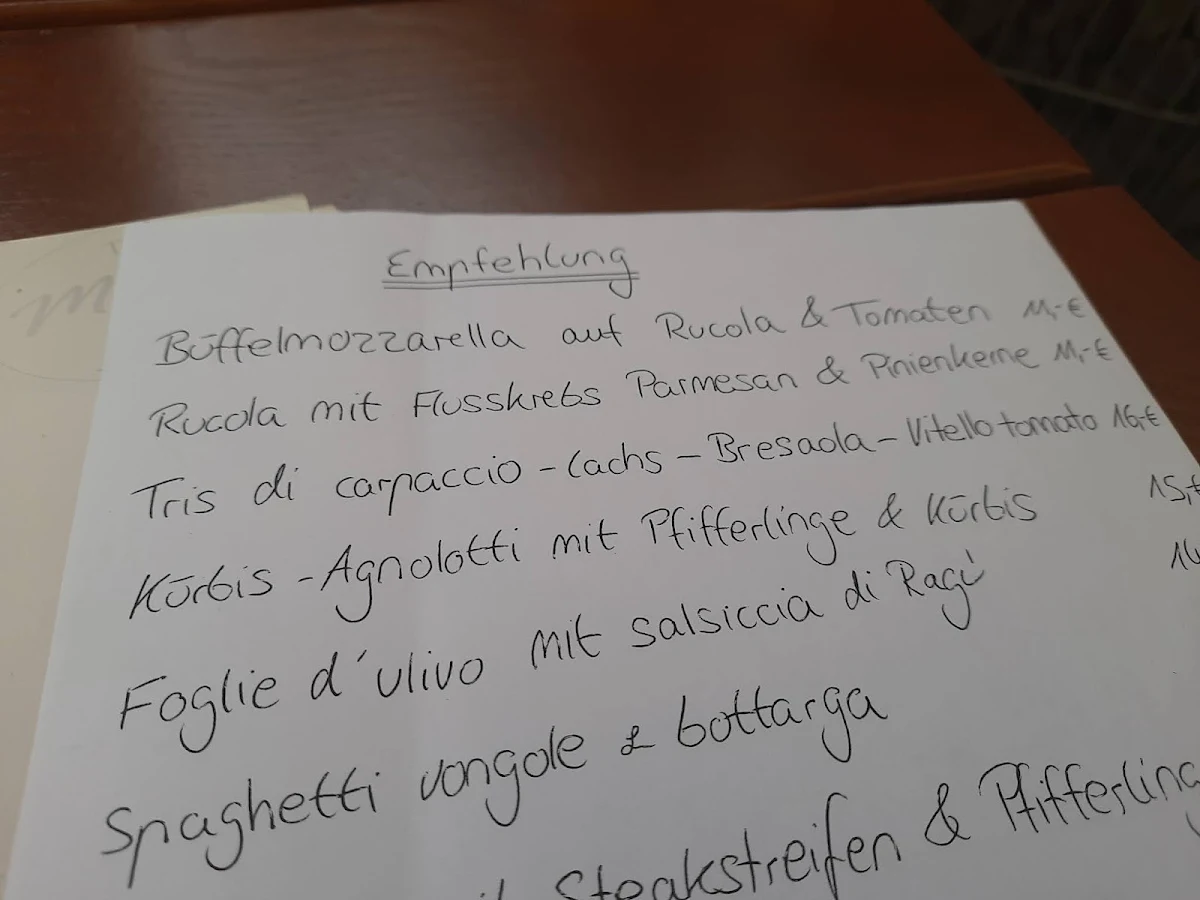 Empfehlung
Büffelmozzarella auf Rucola & Tomaten 14,-€
Rucola mit Flusskrebs Parmesan & Pinienkerne 14,-€
Tris di carpaccio - Lachs - Bresaola - Vitello tomato 16,-€
Kürbis - Agnolotti mit Pfifferlinge & Kürbis 15,-€
Foglie d'ulivo mit salsiccia di Ragù
Spaghetti vongole & bottarga
Steakstreifen & Pfifferling